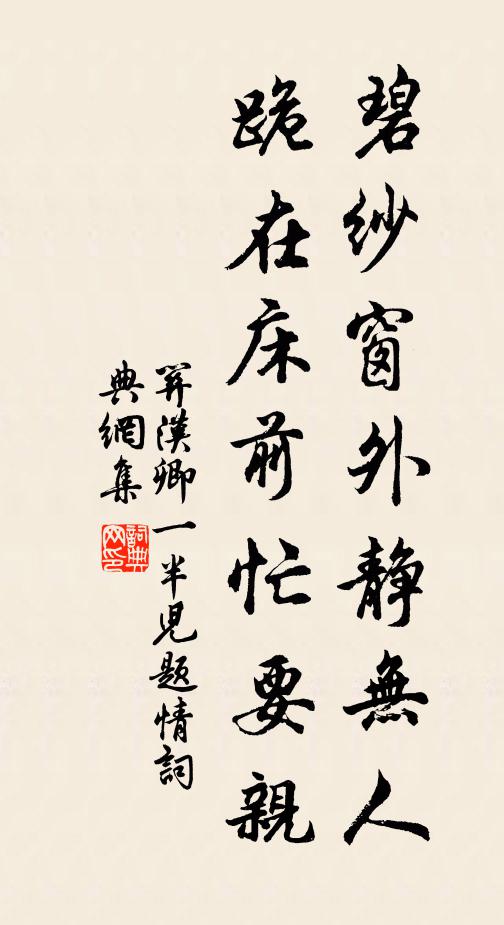 碧紗窗外静無人
跪在床前忙要親
关漢卿一半兒題情詞
典網集
詞典網印